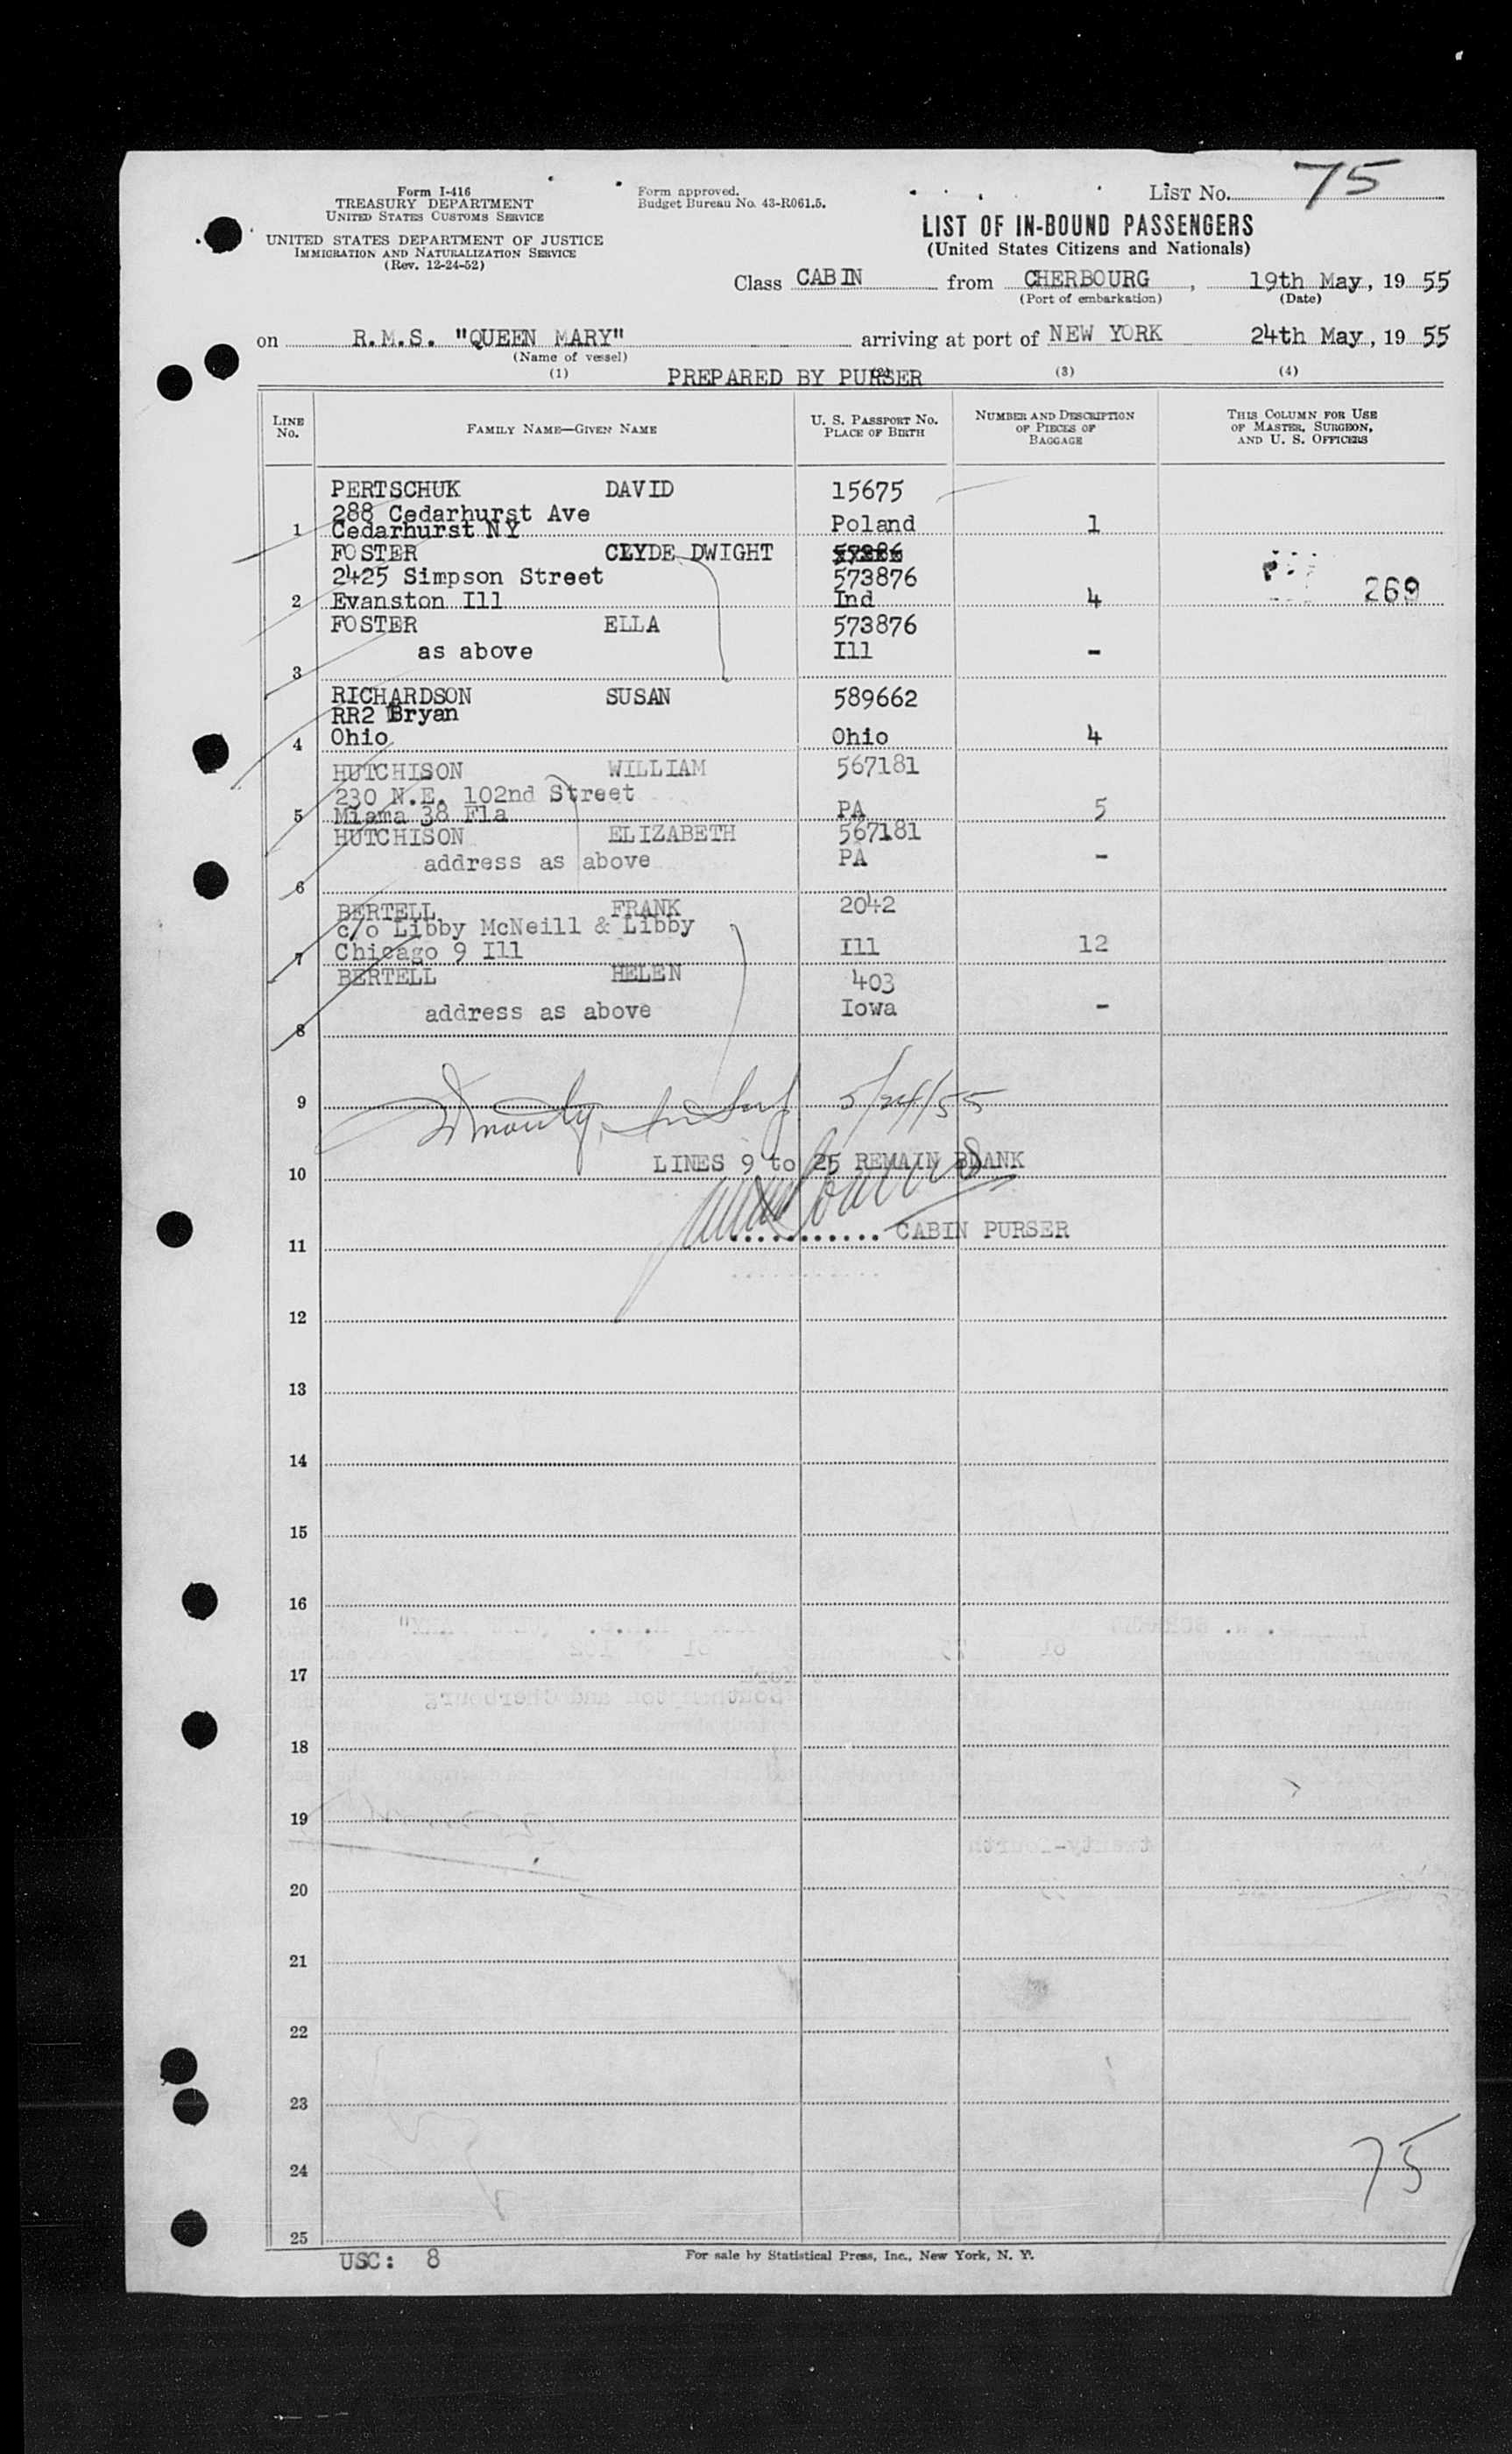 Form I-416
TREASURY DEPARTMENT
UNITED STATES CUSTOMS SERVICE
UNITED STATES DEPARTMENT OF JUSTICE
IMMIGRATION AND NATURALIZATION SERVICE
(Rev. 12-24-52)
Form approved.
Budget Bureau No. 43-R061.5.
LIST No. 75
LIST OF IN-BOUND PASSENGERS
(United States Citizens and Nationals)
Class CABIN from CHERBOURG, 19th May, 19 55
(Port of embarkation) (Date)
on R.M.S. "QUEEN MARY" arriving at port of NEW YORK 24th May, 19 55
(Name of vessel)
(1) PREPARED BY PURSER (2) (3) (4)
LINE No. FAMILY NAME—GIVEN NAME U. S. PASSPORT No. PLACE OF BIRTH NUMBER AND DESCRIPTION OF PIECES OF BAGGAGE THIS COLUMN FOR USE OF MASTER, SURGEON, AND U. S. OFFICERS
PERTSCHUK DAVID 15675
288 Cedarhurst Ave
1 Cedarhurst NY Poland 1
FOSTER CLYDE DWIGHT
2425 Simpson Street 573876
2 Evanston Ill Ind 4 269
FOSTER ELLA 573876
as above Ill -
3
RICHARDSON SUSAN 589662
RR2 Bryan
4 Ohio Ohio 4
HUTCHISON WILLIAM 567181
230 N.E. 102nd Street
5 Miama 38 Fla PA 5
HUTCHISON ELIZABETH 567181
address as above PA -
6
BERTELL FRANK 2042
c/o Libby McNeill & Libby
7 Chicago 9 Ill Ill 12
BERTELL HELEN 403
address as above Iowa -
8
9 5/24/55
10 LINES 9 to 25 REMAIN BLANK
11 ........... CABIN PURSER
12
13
14
15
16
17
18
19
20
21
22
23
24 75
25
USC: 8 For sale by Statistical Press, Inc., New York, N. Y.